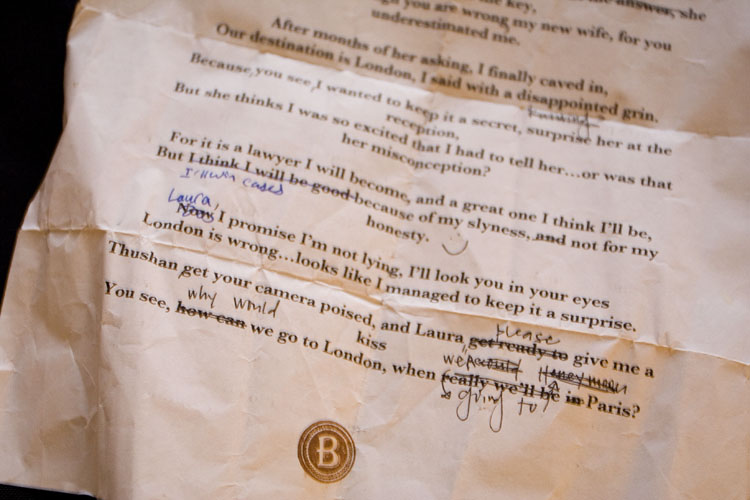 the key,
the answer, she
gh you are wrong my new wife, for you
underestimated me.
After months of her asking, I finally caved in,
Our destination is London, I said with a disappointed grin.
Because you see I wanted to keep it a secret, surprise her at the
reception,
But she thinks I was so excited that I had to tell her...or was that
her misconception?
For it is a lawyer I will become, and a great one I think I'll be,
But I think I will be good because of my slyness, and not for my
I'll win cases
honesty.
Laura
Now, I promise I'm not lying, I'll look you in your eyes
London is wrong...looks like I managed to keep it a surprise.
Thushan get your camera poised, and Laura, get ready to give me a
please
kiss
why would
You see, how can we go to London, when really we'll be in Paris?
we
Honeymoon
going to
B